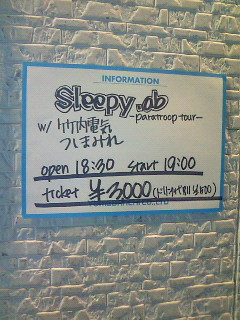 INFORMATION
Sleepy.ab
-paratroop tour-
w/ 竹内電気
つしまみれ
open 18:30 start 19:00
ticket ¥3000(ドリンク代別¥500)